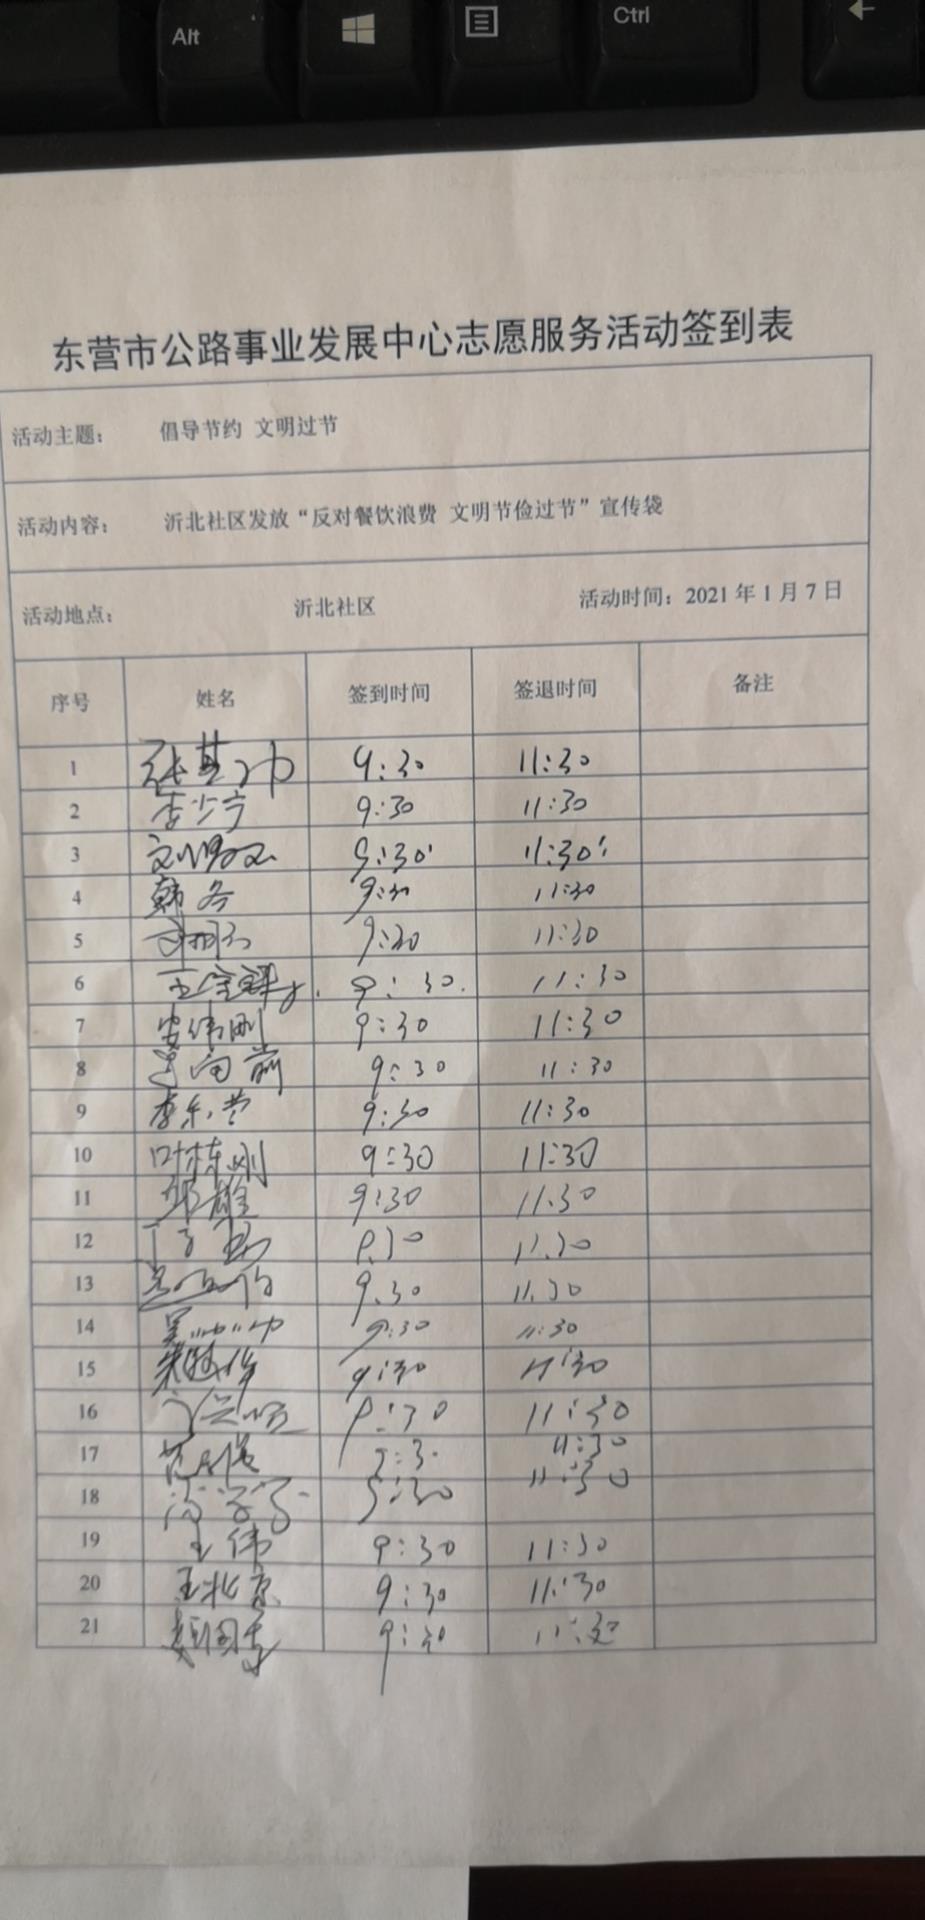 Alt
Ctrl
东营市公路事业发展中心志愿服务活动签到表
活动主题： 倡导节约 文明过节
活动内容： 沂北社区发放“反对餐饮浪费 文明节俭过节”宣传袋
活动地点： 沂北社区 活动时间：2021年1月7日
序号 姓名 签到时间 签退时间 备注
1 9:30 11:30
2 李少宁 9:30 11:30
3 9:30 11:30
4 韩冬 9:30 11:30
5 9:30 11:30
6 9:30. 11:30
7 安伟刚 9:30 11:30
8 9:30 11:30
9 9:30 11:30
10 叶栋刚 9:30 11:30
11 9:30 11.30
12 9.30 11.30
13 9.30 11.30
14 9:30 11:30
15 9:30 11:30
16 9:30 11:30
17 11:30
18 9:30 11:30
19 王伟 9:30 11:30
20 王北京 9:30 11:30
21 9:30 11:30